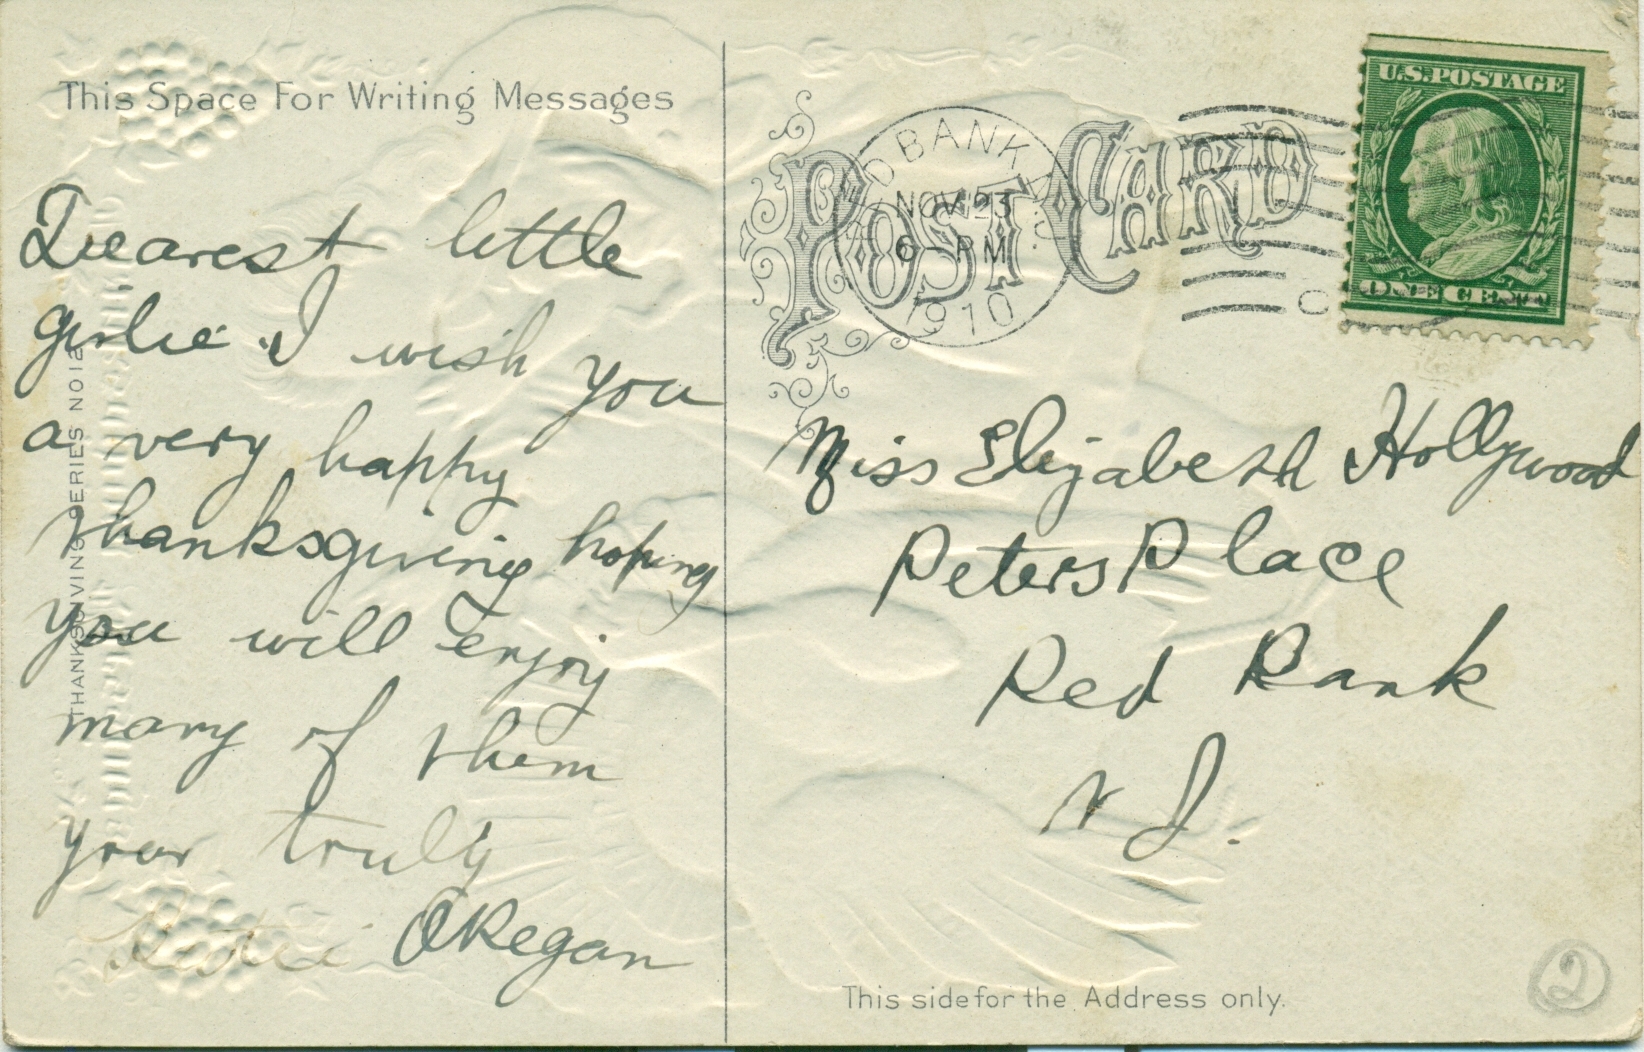 This Space For Writing Messages
Dearest little
girlie. I wish you
a very happy
thanksgiving hoping
you will enjoy
many of them
your truly
OKegan
THANKSGIVING SERIES NO12
POST CARD
RED BANK N.J.
NOV 23
6 - PM
1910
U.S. POSTAGE
ONE CENT
Miss Elizabeth Hollywood
Peters Place
Red Bank
N J.
This side for the Address only.
2